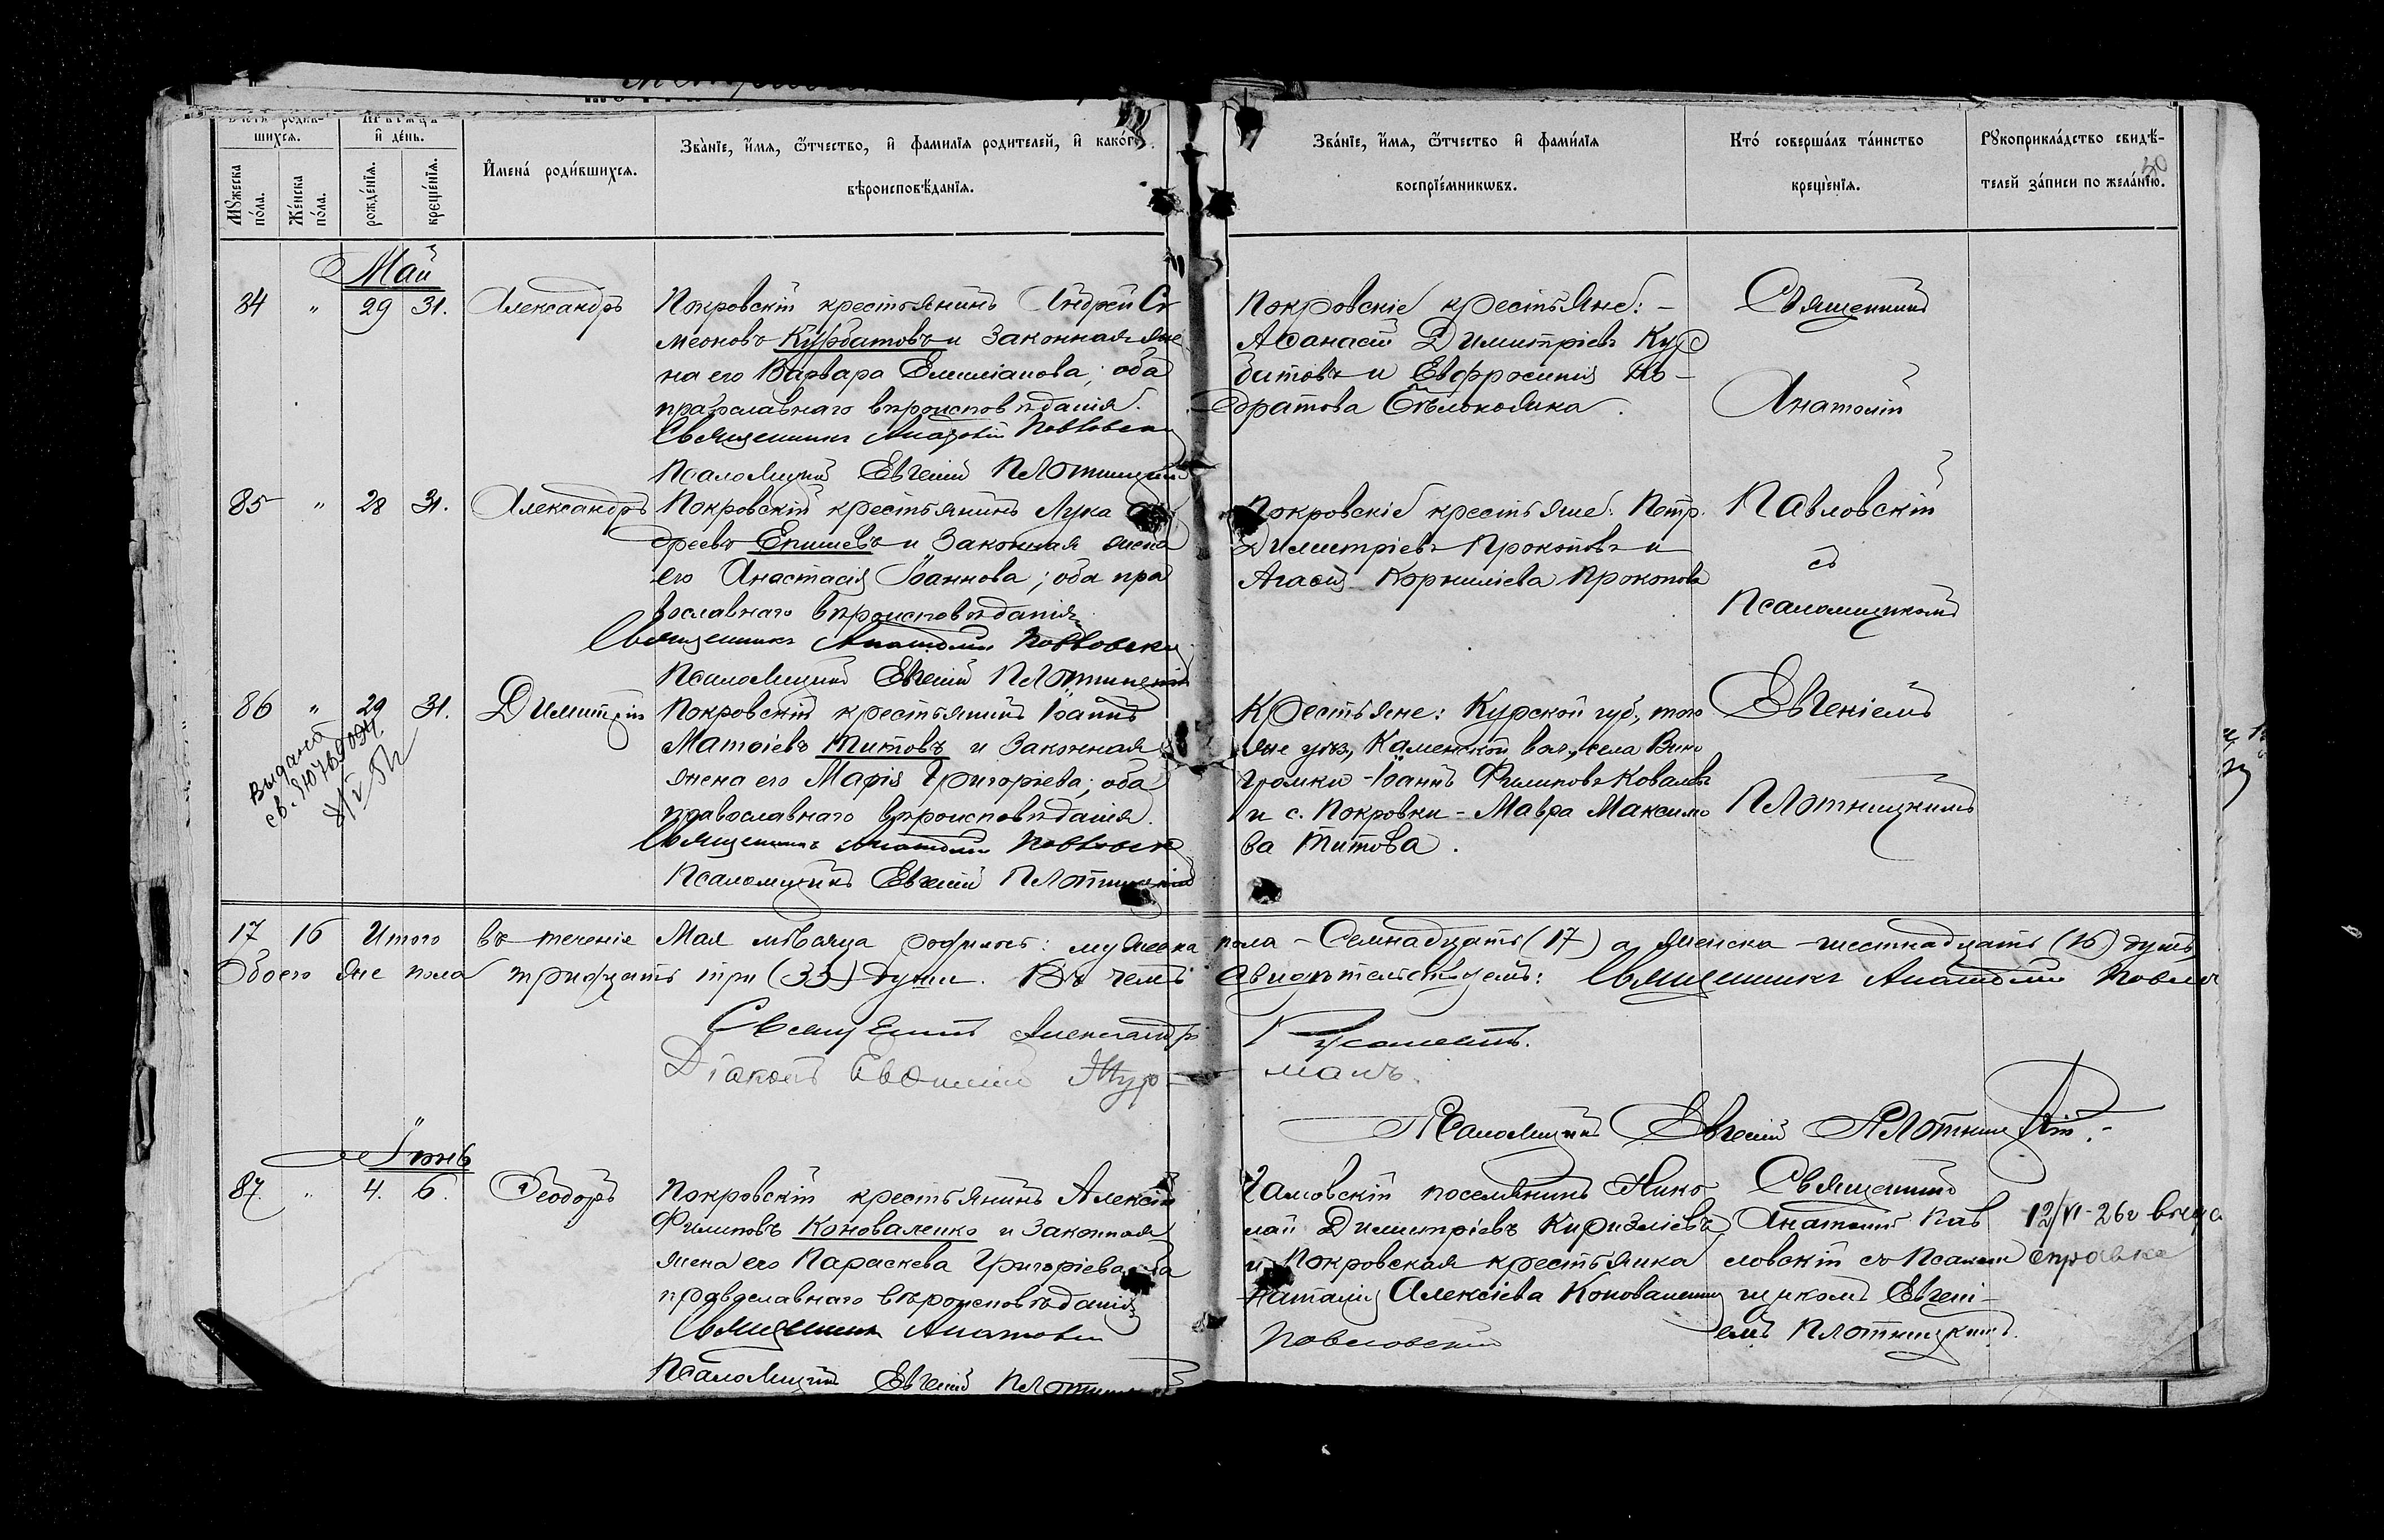 Счетъ родив-
шихся.
Мужеска пола.
Женска пола.
Мѣсяцъ
и день.
рожденїя.
крещенїя.
Имена родившихся.
Званїе, имя, отчество, и фамилїя родителей, и какого
вѣроисповѣданїя.
Званїе, имя, отчество и фамилїя
воспрїемниковъ.
Кто совершалъ таинство
крещенїя.
Рукоприкладство свидѣ-
телей записи по желанїю.
50
Май
84 " 29 31. Александръ
Покровскій крестьянинъ Андрей Си
меоновъ Курбатовъ и законная же
на его Варвара Емиліанова; оба
православнаго вѣроисповѣданія.
Священникъ Анатолій Павловскій
Псаломщикъ Евгеній Плотницкій
Покровскіе крестьяне: -
Аѳанасій Димитріевъ Кур
батовъ и Евфросинія Ко-
дратова Бѣлоконяка.
Священникъ
Анатолій
85 " 28 31. Александръ
Покровскій крестьянинъ Лука
дреевъ Епишевъ и законная жена
его Анастасія Іоаннова; оба пра
вославнаго вѣроисповѣданія
Священникъ Анатолій Павловскій
Псаломщикъ Евгеній Плотницкій
Покровскіе крестьяне: Петр.
Димитріевъ Прокоповъ и
Агаѳія Корниліева Прокопова
Павловскій
съ
Псаломщикомъ
86 " 29 31. Димитрій
Выдано
св. ЯЮ №
Покровскій крестьянинъ Іоаннъ
Матѳіевъ Титовъ и законная
жена его Марія Григоріева; оба
православнаго вѣроисповѣданія.
Священникъ Анатолій Павловскій
Псаломщикъ Евгеній Плотницкій
Крестьяне: Курской губ., того
же уѣз., Каменской вол., села Вино
громки - Іоаннъ Филиповъ Ковалевъ
и с. Покровки - Мавра Максимо
ва Титова.
Евгеніемъ
Плотницкимъ
17 16 Итого въ теченіе Мая мѣсяца родилось: мужеска пола - Семнадцать (17) а женска - шестнадцать (16) душъ,
Обоего же пола тридцать три (33) души. Въ чемъ свидѣтельствуемъ: Священникъ Анатолій Павлов
Священникъ Александръ
Діаконъ Евѳимій Жур-
малъ.
Псаломщикъ Евгеній Плотницкій.-
Іюнь
87. " 4. 6. Ѳеодоръ
Покровскій крестьянинъ Алексій
Филиповъ Коноваленко и законная
жена его Параскева Григоріева, оба
православнаго вѣроисповѣданія
Священникъ Анатолій
Псаломщикъ Евгеній Плотницкій
поселянинъ Нико
лай Димитріевъ
и Покровская крестьянка
Наталія Алексіева Коноваленко
Павловскій
Священникъ
Анатолій Пав
ловскій съ Псалом
щикомъ Евгені-
емъ Плотницкимъ.
12/VI-26г выда
справка